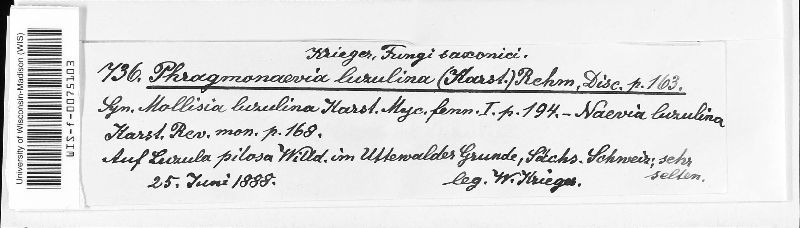 University of Wisconsin-Madison (WIS)
WIS-f-0075103
Krieger, Fungi saxonici.
736. Phragmonaevia luzulina (Karst.) Rehm, Disc. p. 163.
Syn. Mollisia luzulina Karst. Myc. fenn. I. p. 194. – Naevia luzulina
Karst. Rev. mon. p. 168.
Auf Luzula pilosa Willd. im Uttewalder Grunde, Sächs. Schweiz; sehr
selten.
25. Juni 1888. leg. W. Krieger.